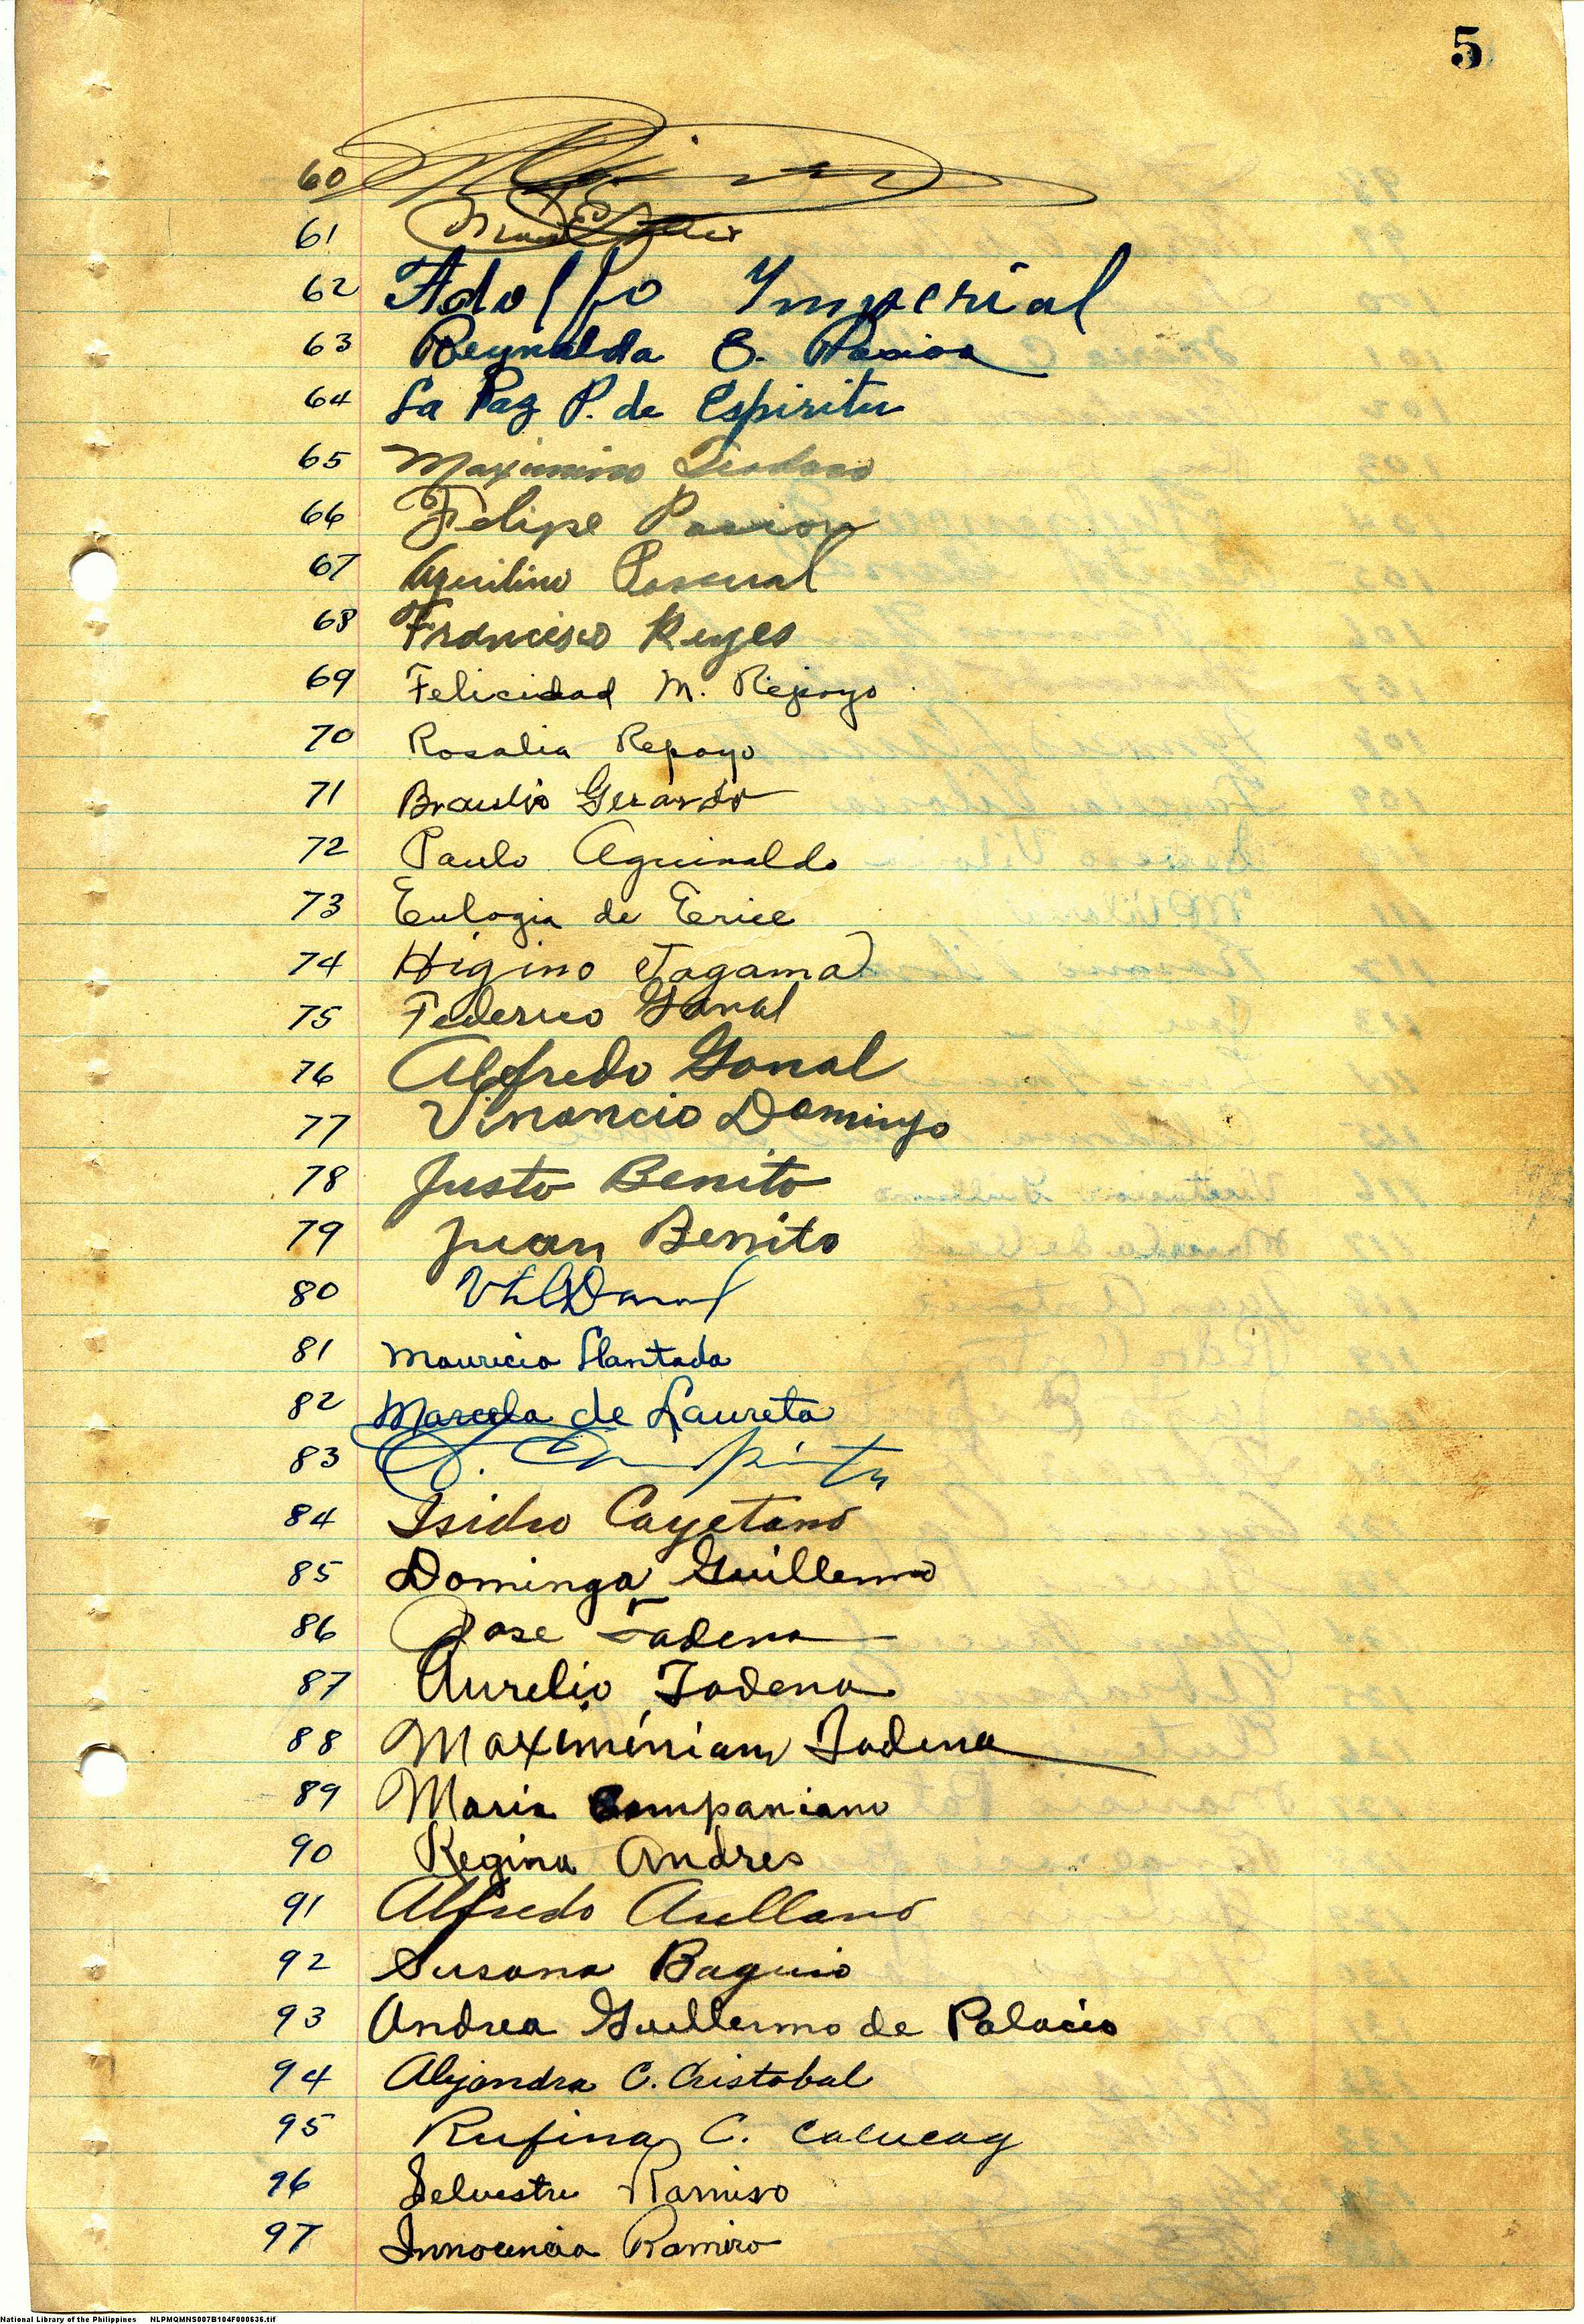 5
60
61
62 Adolfo Imperial
63 Reynalda B. Pasion
64 La Paz P. de Espiritu
65 Maximino Teodoro
66 Felipe Pasion
67 Aquilino Pascual
68 Francisco Reyes
69 Felicidad M. Repoyo
70 Rosalia Repoyo
71 Braulio Gerardo
72 Paulo Aguinaldo
73 Eulogia de Erice
74 Higino Tagama
75 Federico Ganal
76 Alfredo Ganal
77 Vinancio Domingo
78 Justo Benito
79 Juan Benito
80
81 Mauricio Llantada
82 Marcela de Laureta
83
84 Isidro Cayetano
85 Dominga Guillermo
86 Jose Tadena
87 Aurelio Tadena
88 Maximiniam Tadena
89 Maria Companiano
90 Regina Andres
91 Alfredo Arellano
92 Susana Baguio
93 Andrea Guillermo de Palacio
94 Alejandra C. Cristobal
95 Rufina C. Calucag
96 Selvestre Ramiro
97 Innocencia Ramiro
National Library of the Philippines NLPMQMNS007B104F000636.tif